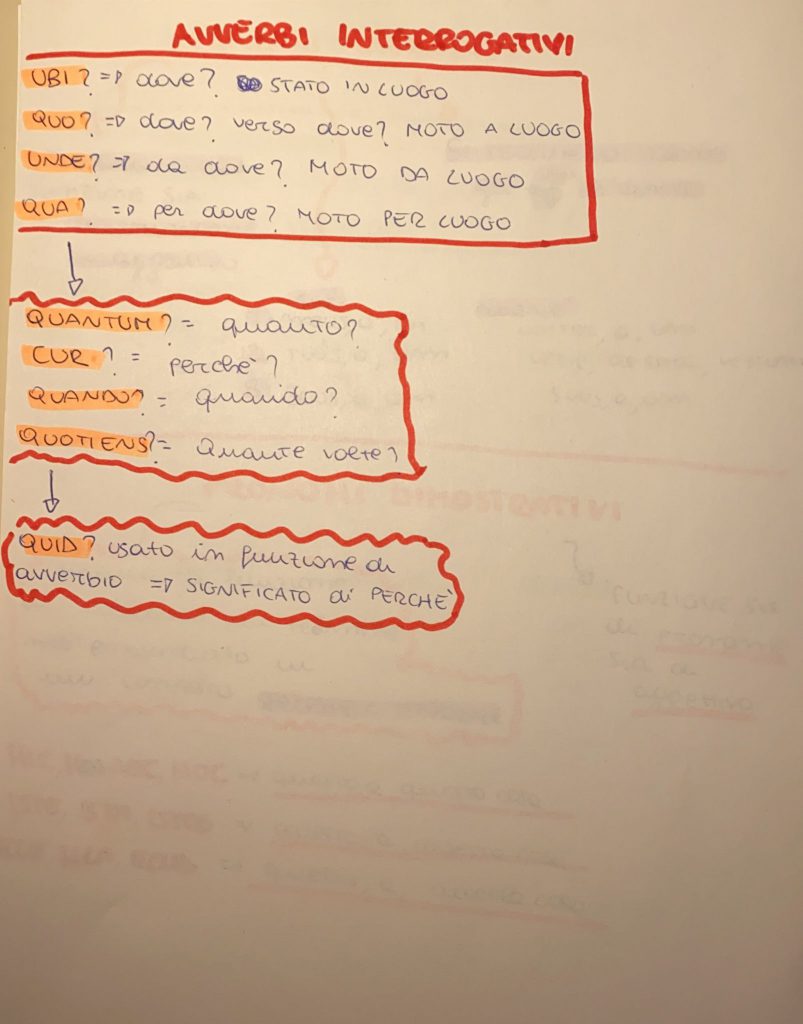 AVVERBI INTERROGATIVI
UBI? => dove? STATO IN LUOGO
QUO? => dove? verso dove? MOTO A LUOGO
UNDE? => da dove? MOTO DA LUOGO
QUA? => per dove? MOTO PER LUOGO
QUANTUM? = quanto?
CUR? = perchè?
QUANDO? = quando?
QUOTIENS? = Quante volte?
QUID? usato in funzione di
avverbio => SIGNIFICATO di PERCHÈ